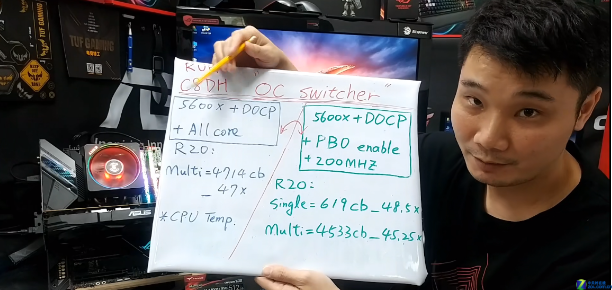 C8DH "OC Switcher"
5600x + DOCP
+ All core
R20:
Multi = 4714cb
_ 47x
*CPU Temp.
5600x + DOCP
+ PBO enable
+ 200MHZ
R20:
Single = 619cb_48.5x
Multi = 4533cb_45.25x
TUF GAMING